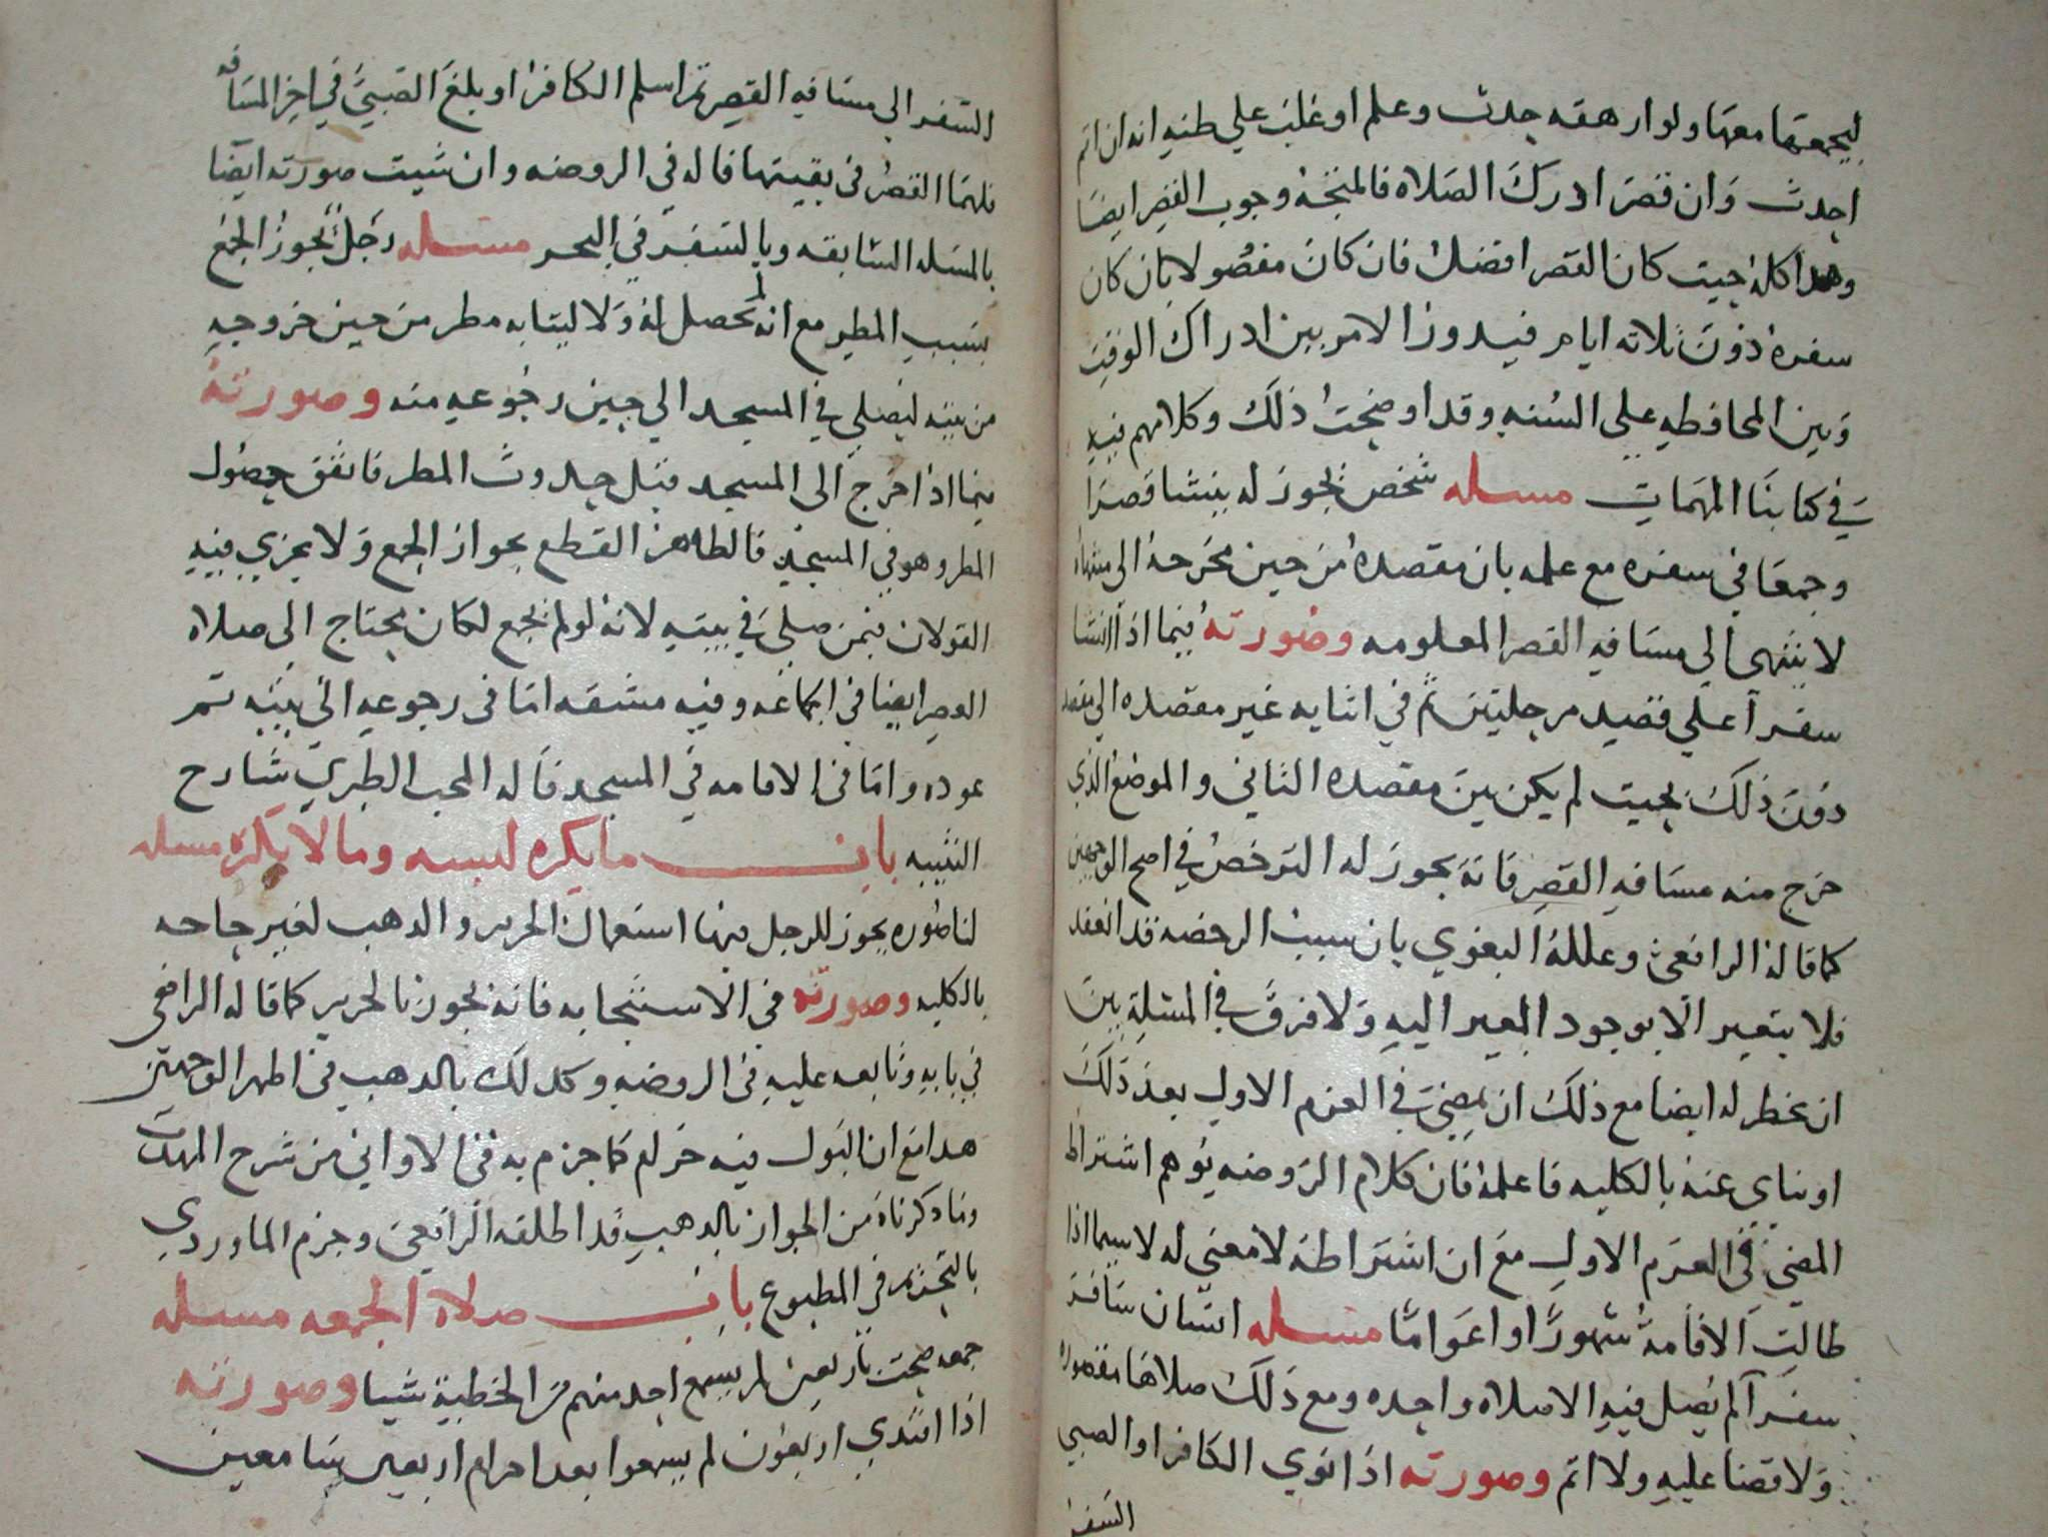 ليجمعها معها ولو ارهقه حدث وعلم او غلب علي ظنه انه ان اتم
احدث وان قصر ادرك الصلاه فالمتجه وجوب القصر ايضا
وهذا كله حيث كان القصر افضل فان كان مفضولا بان كان
سفره دون ثلاثه ايام فيدور الامر بين ادراك الوقت
وبين المحافظه علي السنه وقد اوضحت ذلك وكلامهم فيه
في كتابنا المهمات مسله شخص يجوز له ينشا قصرا
وجمعا في سفره مع علمه بان مقصده من حين مخرجه الى منتهاه
لا ينتهي الي مسافه القصر المعلومه وصورته فيما اذا انشا
سفرا علي قصد مرحلتين ثم في اثنايه غير مقصده الي مقصد
دون ذلك بحيث لم يكن بين مقصده الثاني والموضع الذي
خرج منه مسافه القصر فانه يجوز له الترخص في اصح الوجهين
كما قاله الرافعي وعلله البغوي بان سبب الرخصه قد انعقد
فلا يتغير الا بوجود المغير اليه ولا فرق في المسئلة بين
ان يخطر له ايضا مع ذلك ان يمضي في العزم الاول بعد ذلك
او يناي عنه بالكليه فاعلمه فان كلام الروضه يوهم اشتراط
المضي في العزم الاول مع ان اشتراطه لا معني له لا سيما اذا
طالت الاقامة شهورا او اعواما مسله انسان سافر
سفرا لم يصل فيه الا صلاه واحده ومع ذلك صلاها مقصوره
ولا قضا عليه ولا اثم وصورته اذا نوي الكافر او الصبي
السفر
السفر الي مسافه القصر ثم اسلم الكافر او بلغ الصبي في اخر المسافه
فلهما القصر في بقيتها قاله في الروضه وان شيت صورته ايضا
بالمسله السابقه وبالسفر في البحر مسله رجل يجوز الجمع
بسبب المطر مع انه لم يحصل له ولا لثيابه مطر من حين خروجه
من بيته ليصلي في المسجد الي حين رجوعه منه وصورته
فيما اذا خرج الى المسجد قبل حدوث المطر فاتفق حصول
المطر وهو في المسجد فالظاهر القطع بجواز الجمع ولا يجري فيه
القولان فيمن صلي في بيته لانه لو لم يجمع لكان يحتاج الى صلاه
العصر ايضا في الجماعه وفيه مشقه اما في رجوعه الي بيته ثم
عوده واما في الاقامه في المسجد قاله المحب الطبري شارح
التنبيه باب ما يكره لبسه وما لا يكره مسله
لنا صوره يجوز للرجل فيها استعمال الحرير والذهب لغير حاجه
بالكليه وصورته في الاستنجا به فانه يجوز بالحرير كما قاله الرافعي
في بابه وتابعه عليه في الروضه وكذلك بالذهب في اظهر الوجهين
هذا مع ان البول فيه حرام كما جزم به في الاواني من شرح المهذب
وما ذكرناه من الجواز بالذهب قد اطلقه الرافعي وجزم الماوردي
بالتحريم في المطبوع باب صلاة الجمعه مسله
جمعه صحت باربعين لم يسمع احد منهم من الخطبة شيا وصورته
اذا اقتدي اربعون لم يسمعوا بعد احرام اربعين سامعين